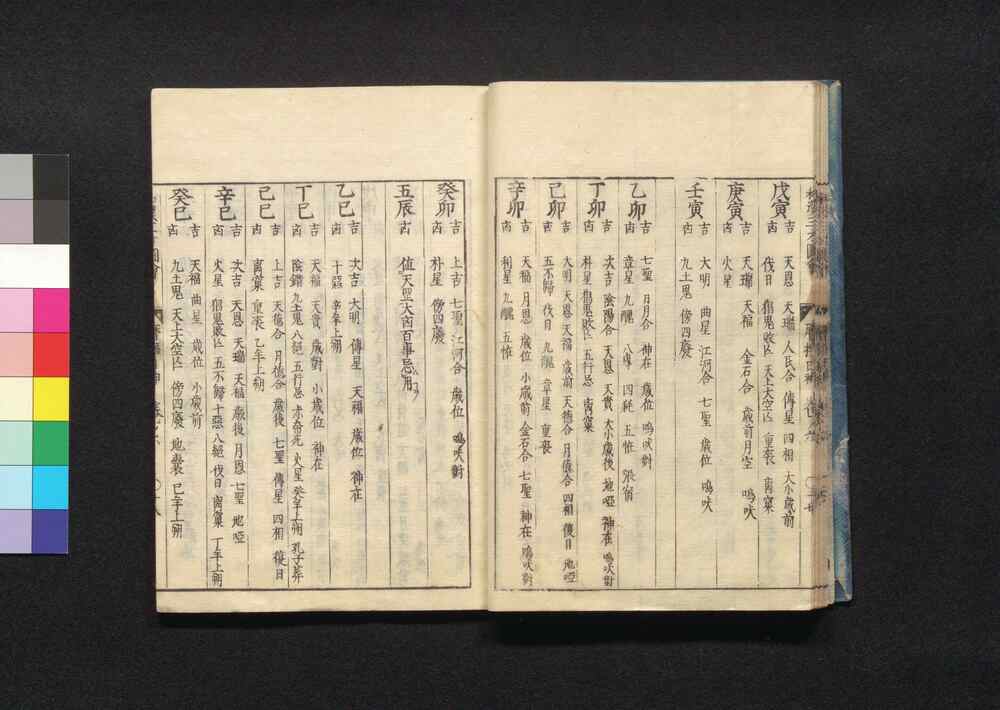 戊寅
吉 天恩 天瑞 人民合 傳星 四相 大小歳前
㐫 伐日 天上大空亡 重喪
庚寅
吉 天瑞 天福 金石合 歳前月空 鳴吠
㐫 火星
壬寅
吉 大明 曲星 江河合 七聖 歳位 鳴吠
㐫 九土鬼 傍四廢
乙卯
吉 七聖 月月合 神在 歳位 鳴吠對
㐫 章星 九醜 八專 四耗 五惟
丁卯
吉 次吉 陰陽合 天恩 天貴 大小歳後 地啞 神在 鳴吠對
㐫 朴星 五行忌
己卯
吉 大明 天恩 天福 歳前 天德合 月德合 四相 復日 地啞
㐫 五不歸 伐日 九醜 章星 重喪
辛卯
吉 天福 月恩 歳位 小歳前 金石合 七聖 神在 鳴吠對
㐫 利星 九醜 五惟
癸卯
吉 上吉 七聖 江河合 歳位 鳴吠對
㐫 朴星 傍四廢
五辰
㐫 值天罡大㐫百事忌用
乙巳
吉 次吉 大明 傳星 天福 歳位 神在
㐫 十惡 辛年上朔
丁巳
吉 天福 天貴 歳對 小歳位 神在
㐫 陰錯 九土鬼 八絕 五行忌 赤帝死 火星 癸年上朔 孔子葬
己巳
吉 上吉 天德合 月德合 歳後 七聖 傳星 四相 復日
㐫 重喪 乙年上朔
辛巳
吉 次吉 天恩 天瑞 天福 歳後 月恩 七聖 地啞
㐫 火星 五不歸 十惡 八絕 伐日 丁年上朔
癸巳
吉 天福 曲星 歳位 小歳前
㐫 九土鬼 天上大空亡 傍四廢 地囊 己年上朔